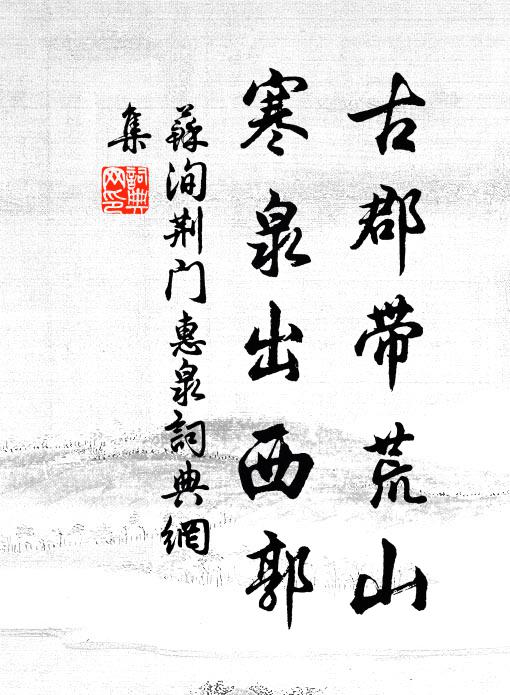 古郡带荒山
寒泉出西郭
蘇洵荆门惠泉詞典網
集
詞典网印